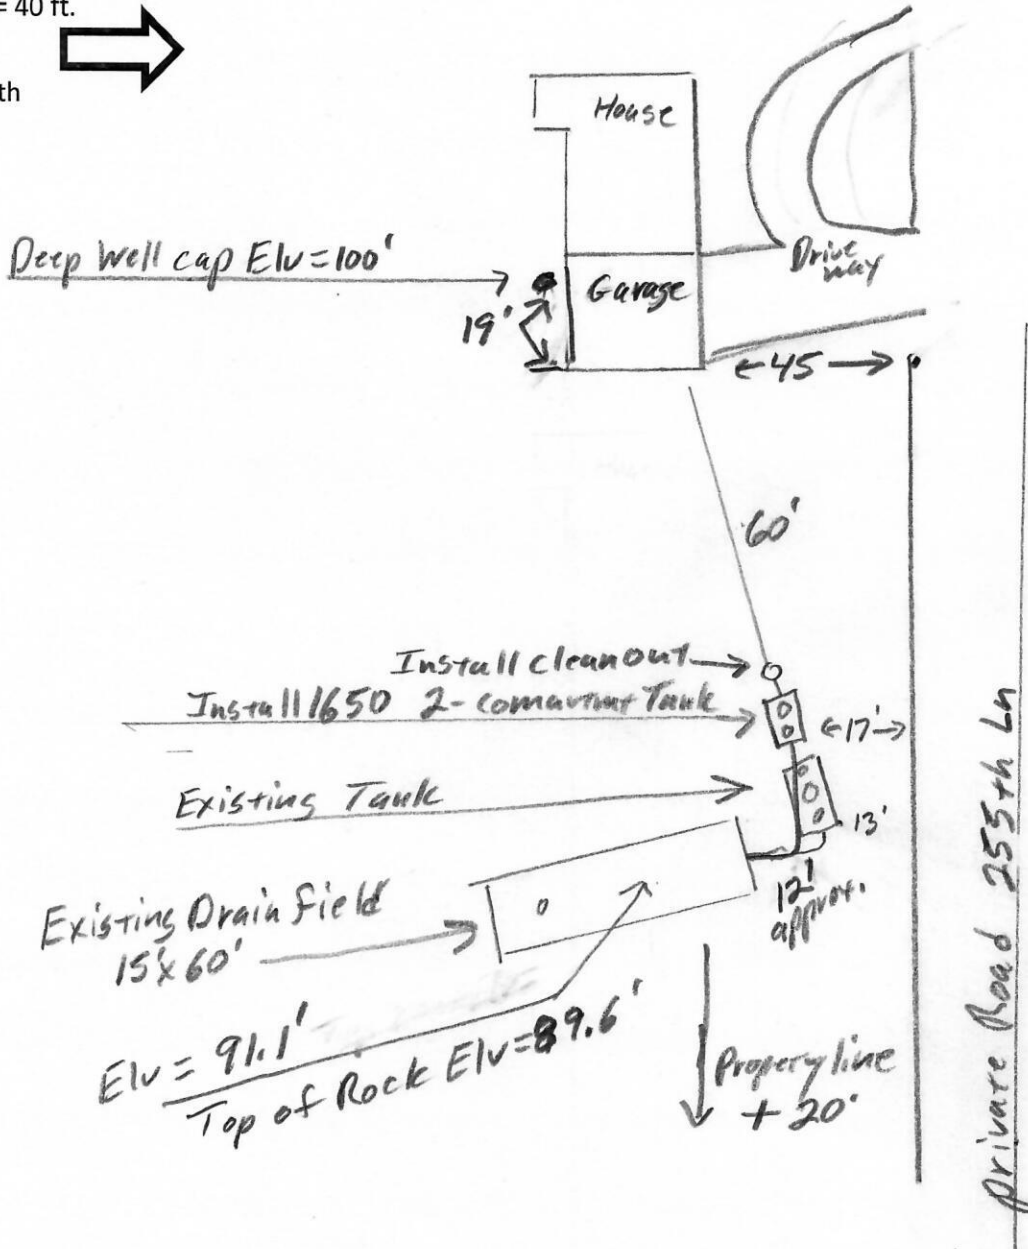 = 40 ft.
th
House
Drive
way
Deep Well cap Elv=100'
Garage
19'
←45→
60'
Install cleanout
Install 1650 2-comartmt Tank
←17'→
Existing Tank
13'
12'
approx.
Existing Drain field
15'x60'
Elv = 91.1'
Top of Rock Elv=89.6'
Property line
+ 20'
private Road 255th Ln